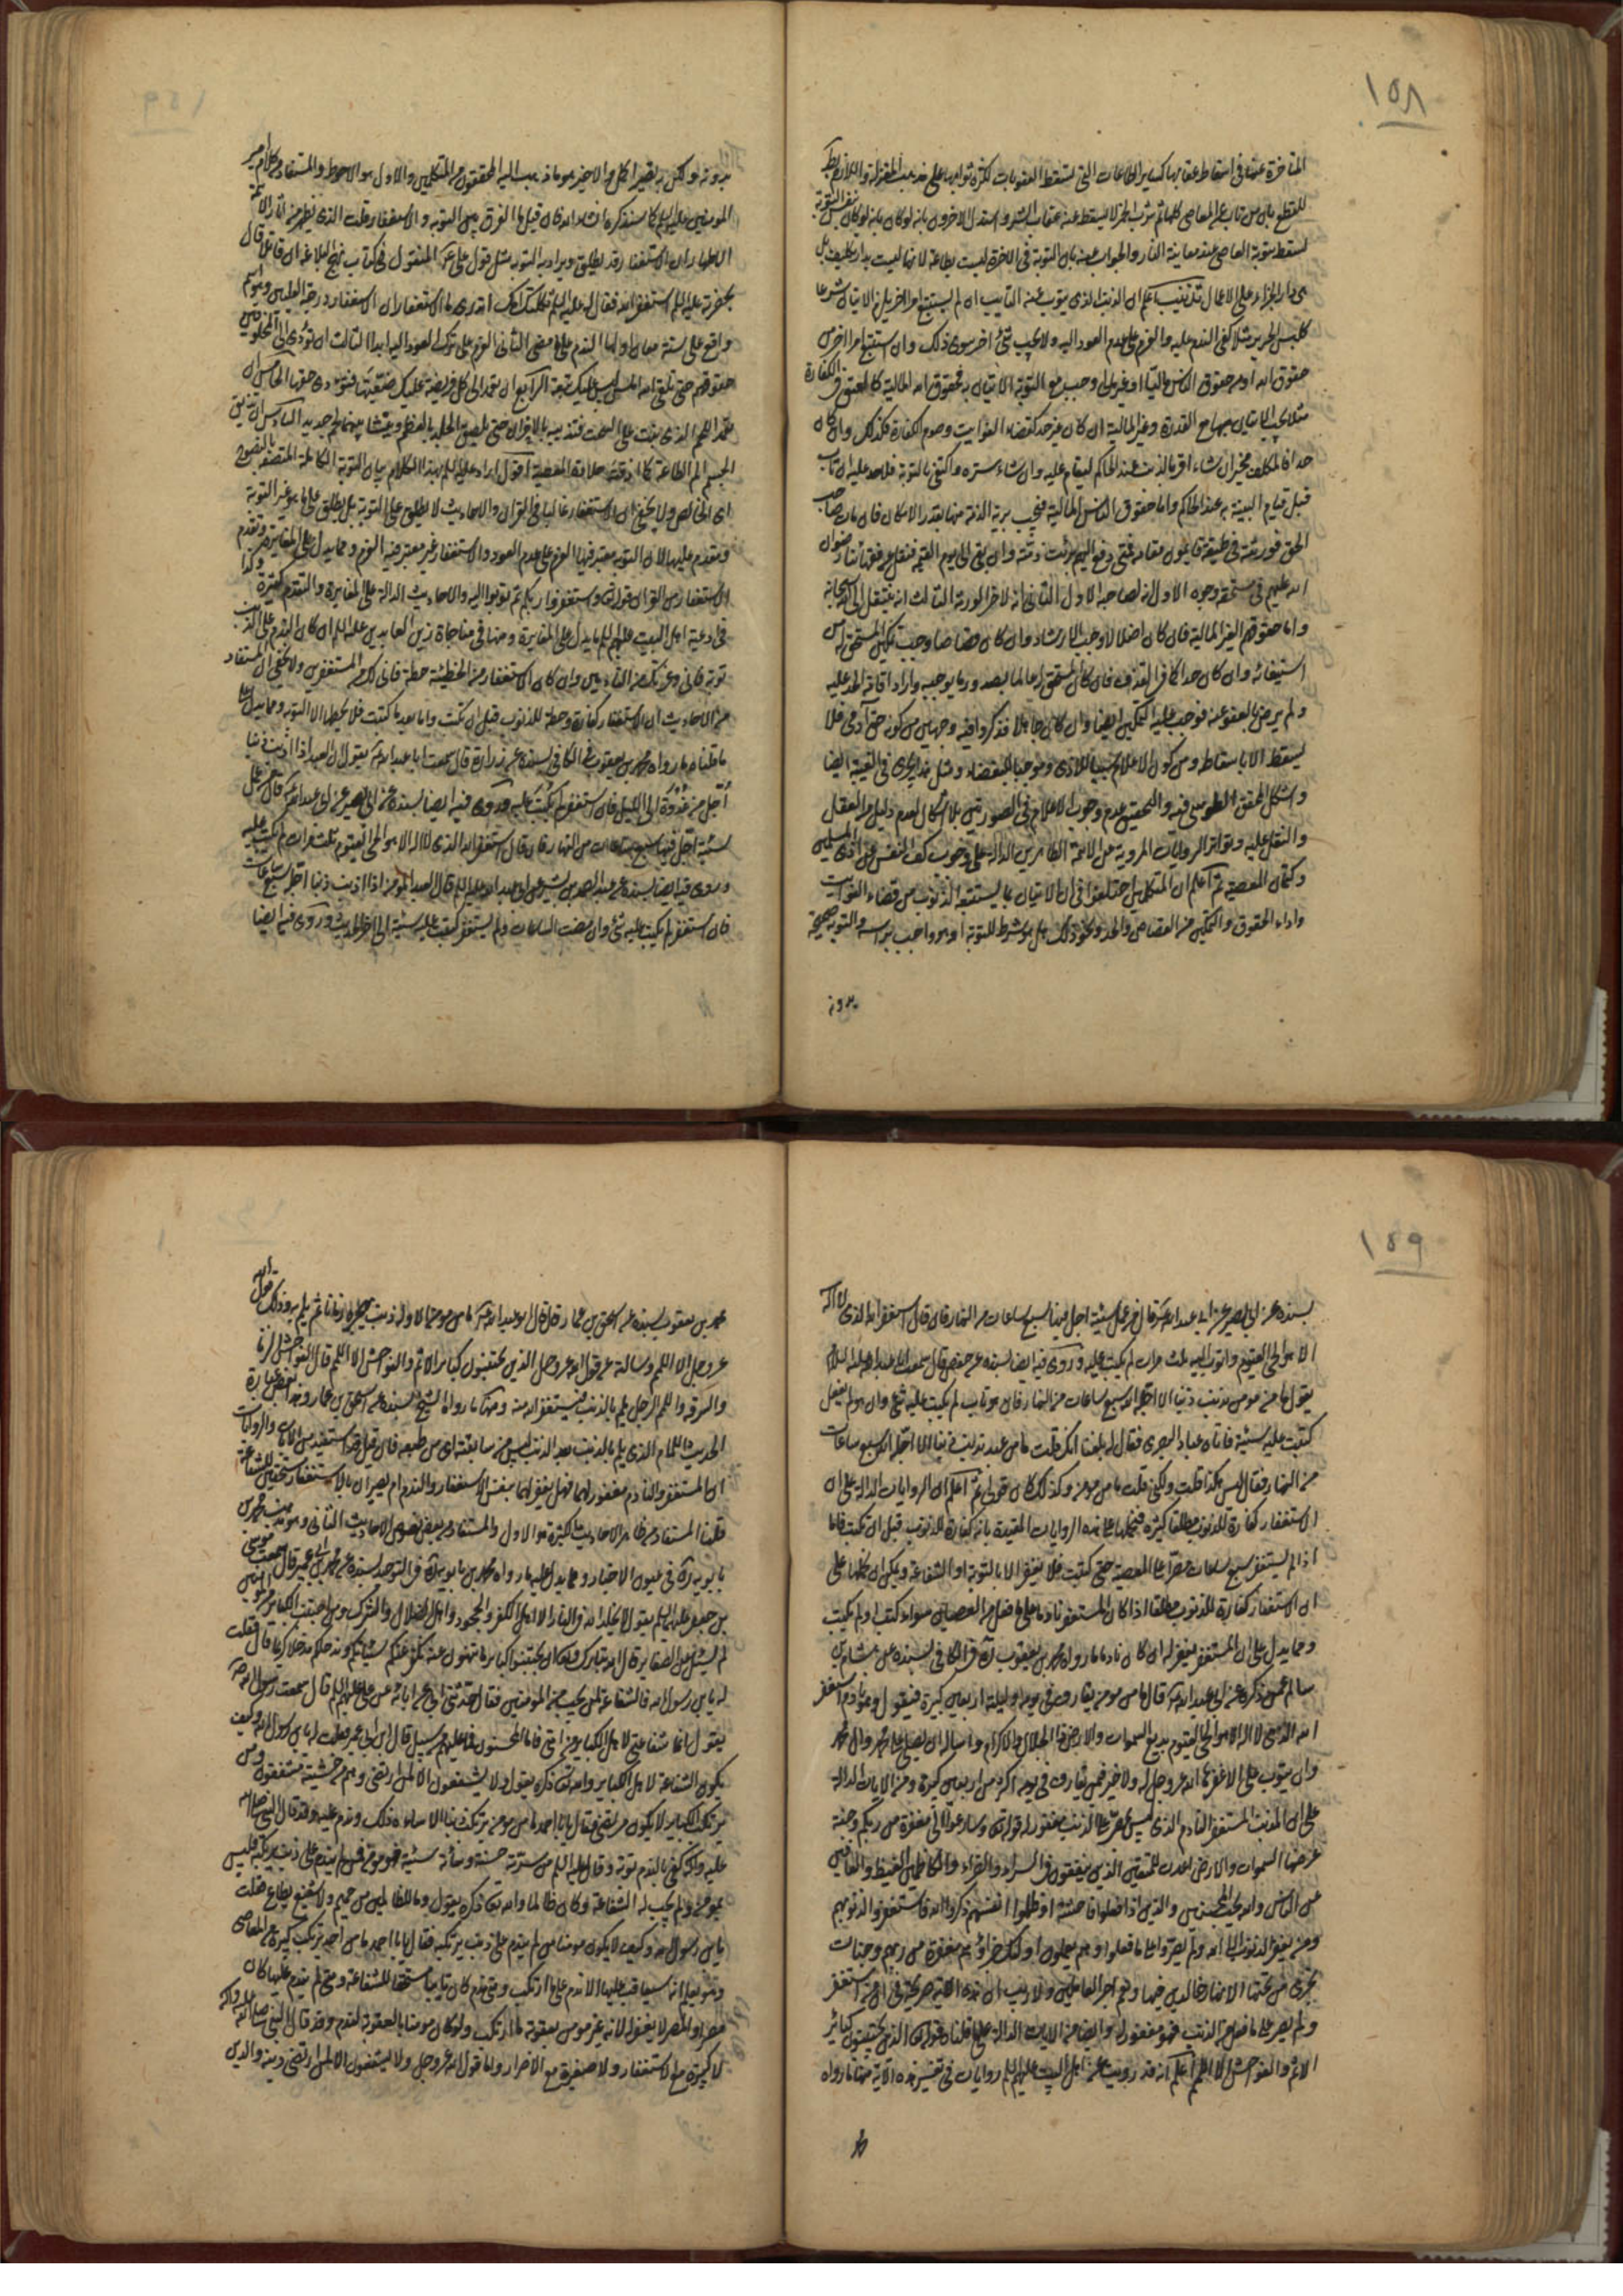 ١٥٨
المتاخرة عنها في اسقاط عقابها كساير الطاعات التي تسقط العقوبات لكثرة ثوابها على مذهب المعتزلة
للقطع بان من تاب عن المعاصي كلها ثم شرب الخمر لا يسقط عنه عقاب الشرب واستدل الاخرون بانه لو كان نفس التوبة
تسقط بتوبة العاصي عند معاينة النار والجواب عنه بان التوبة في الاخرة ليست بطاعة لانها ليست بدار تكليف بل
هي دار الجزاء على الاعمال تذنيب اعلم ان الذنب الذي يتوب عنه التائب ان لم يستتبع امرا اخر يلزم الاتيان به شرعا
كلبس الحرير مثلا كفى الندم عليه والعزم على عدم العود اليه ولا يجب شئ اخر سوى ذلك وان استتبع امرا اخر من
حقوق الله او من حقوق الناس ماليا او غير مالي وجب مع التوبة الاتيان به فحقوق الله المالية كالعتق في الكفارة
مثلا يجب الاتيان بها مع القدرة وغير المالية ان كان غير حد كقضاء الفوايت وصوم الكفارة فكذلك وان كان
حدا فالمكلف مخير ان شاء اقر بالذنب عند الحاكم ليقام عليه وان شاء ستره واكتفى بالتوبة فلا حد عليه ان تاب
قبل قيام البينة به عند الحاكم واما حقوق الناس المالية فيجب برية الذمة منها بقدر الامكان فان مات صاحب
الحق فورثته في كل طبقة قائمون مقامه فمتى دفع اليهم برئت ذمته وان بقي الى يوم القيمة فنقل عن فقهائنا رضوان
الله عليهم في مستحقه وجوه الاول انه لصاحبه الاول الثاني انه لاخر الورثة الثالث انه ينتقل الى الله سبحانه
واما حقوقهم الغير المالية فان كان اضلالا وجب الارشاد وان كان قصاصا وجب تمكين المستحق من
استيفائه وان كان حدا كما في القذف فان كان المستحق له عالما بصدور ما يوجبه واراد اقامة الحد عليه
ولم يرض بالعفو عنه فوجب عليه التمكين ايضا وان كان جاهلا فذكروا فيه وجهين من كونه حق آدمي فلا
يسقط الا باسقاطه ومن كون الاعلام تنبيها للاذى وموجبا للبغضاء ومثل هذا يجري في الغيبة ايضا
واستشكل المحقق الطوسي فيه والتحقيق عدم وجوب الاعلام في الصورتين بلا اشكال لعدم دليل من العقل
والنقل عليه ولتواتر الروايات المروية عن الائمة الطاهرين الدالة على وجوب كف النفس عن اذى المسلمين
وكتمان المعصية ثم اعلم ان المتكلمين اختلفوا في ان الاتيان بما يستتبعه الذنوب من قضاء الفوايت
واداء الحقوق والتمكين من القصاص والحد ونحو ذلك هل هو شرط للتوبة او هو واجب براسه والتوبة صحيحة
بدونه
بدونه ولكن به تصير اكمل والاخير هو ما ذهب اليه المحققون من المتكلمين والاول هو الاحوط والمستفاد من كلام امير
المومنين عليه السلم كما سنذكره انشاء الله فان قيل ما الفرق بين التوبة والاستغفار قلت الذي يظهر من اثار الائمة
الاطهار ان الاستغفار قد يطلق ويراد به التوبة مثل قول علي ع المنقول في كتاب نهج البلاغة ان قائلا قال
بحضرته عليه السلم استغفر الله فقال له عليه السلم ثكلتك امك اتدري ما الاستغفار ان الاستغفار درجة العليين وهو اسم
واقع على ستة معان اولها الندم على ما مضى الثاني العزم على ترك العود اليه ابدا الثالث ان تؤدي الى المخلوقين
حقوقهم حتى تلقى الله املس ليس عليك تبعة الرابع ان تعمد الى كل فريضة عليك ضيعتها فتؤدي حقها الخامس ان
تعمد الى اللحم الذي نبت على السحت فتذيبه بالاحزان حتى يلصق الجلد بالعظم وينشأ بينهما لحم جديد السادس ان تذيق
الجسم الم الطاعة كما اذقته حلاوة المعصية اقول اراد عليه السلم بهذا الكلام بيان التوبة الكاملة المتصفة بالنصوح
اي الخالص ولا يخفى ان الاستغفار غالبا في القران والاحاديث لا يطلق على التوبة بل يطلق على ما هو غير التوبة
ومقدم عليها لان التوبة معتبر فيها العزم على عدم العود والاستغفار غير معتبر فيه العزم ومما يدل على المغايرة وتقدم
الاستغفار من القران قوله تع واستغفروا ربكم ثم توبوا اليه والاحاديث الدالة على المغايرة والتقدم كثيرة وكذا
في ادعية اهل البيت عليهم السلم ما يدل على المغايرة ومنها في مناجاة زين العابدين عليه السلم ان كان الندم على الذنب
توبة فاني وعزتك من النادمين وان كان الاستغفار من الخطيئة حطة فاني لك من المستغفرين ولا يخفى ان المستفاد
من الاحاديث ان الاستغفار كفارة وحطة للذنوب قبل ان تكتب واما بعد ما كتبت فلا يحطها الا التوبة ومما يدل على
ما قلناه ما رواه محمد بن يعقوب في الكافي بسنده عن زرارة قال سمعت ابا عبد الله ع يقول ان العبد اذا اذنب ذنبا
اجل من غدوة الى الليل فان استغفر لم يكتب عليه وروى فيه ايضا بسنده عن ابي بصير عن ابي عبد الله ع قال من عمل
سيئة اجل فيها سبع ساعات من النهار فان قال استغفر الله الذي لا اله الا هو الحي القيوم ثلث مرات لم يكتب عليه
وروى فيه ايضا بسنده عن عبد الصمد بن بشير عن ابي عبد الله عليه السلم قال العبد المؤمن اذا اذنب ذنبا اجله سبع ساعات
فان استغفر لم يكتب عليه شئ وان مضت الساعات ولم يستغفر كتبت عليه سيئة الى اخر الحديث وروى فيه ايضا
١٥٩
بسنده عن ابي بصير عن ابي عبد الله ع قال من عمل سيئة اجل فيها سبع ساعات من النهار فان قال استغفر الله الذي لا اله
الا هو الحي القيوم واتوب اليه ثلث مرات لم يكتب عليه وروى فيه ايضا بسنده عن حفص قال سمعت ابا عبد الله عليه السلام
يقول ما من مومن يذنب ذنبا الا اجله الله سبع ساعات من النهار فان هو تاب لم يكتب عليه شئ وان هو لم يفعل
كتبت عليه سيئة فاتاه عباد البصري فقال له بلغنا انك قلت ما من عبد يذنب ذنبا الا اجله الله سبع ساعات
من النهار فقال ليس هكذا قلت ولكني قلت ما من مومن وكذلك كان قولي ثم اعلم ان الروايات الدالة على ان
الاستغفار كفارة للذنوب مطلقا كثيرة فنحملها على هذه الروايات المقيدة بانه كفارة للذنوب قبل ان تكتب فاما
اذا لم يستغفر سبع ساعات مصرا على المعصية حتى كتبت فلا يغفر الا بالتوبة او الشفاعة ويمكن ان نحملها على
ان الاستغفار كفارة للذنوب مطلقا اذا كان المستغفر نادما على ما فعل من العصيان سواء كتب او لم يكتب
ومما يدل على ان المستغفر يغفر له ان كان نادما ما رواه محمد بن يعقوب ره في الكافي بسنده عن هشام بن
سالم عمن ذكره عن ابي عبد الله ع قال ما من مومن يقارف في يومه وليلته اربعين كبيرة فيقول وهو نادم استغفر
الله الذي لا اله الا هو الحي القيوم بديع السموات والارض ذا الجلال والاكرام واسئله ان يصلي على محمد وال محمد
وان يتوب علي الا غفرها الله عز وجل له ولا خير فيمن يقارف في يومه اكثر من اربعين كبيرة ومن الايات الدالة
على ان المذنب المستغفر النادم الذي ليس بمصر على الذنب مغفور له قوله تع وسارعوا الى مغفرة من ربكم وجنة
عرضها السموات والارض اعدت للمتقين الذين ينفقون في السراء والضراء والكاظمين الغيظ والعافين
عن الناس والله يحب المحسنين والذين اذا فعلوا فاحشة او ظلموا انفسهم ذكروا الله فاستغفروا لذنوبهم
ومن يغفر الذنوب الا الله ولم يصروا على ما فعلوا وهم يعلمون اولئك جزاؤهم مغفرة من ربهم وجنات
تجري من تحتها الانهار خالدين فيها ونعم اجر العاملين ولا ريب ان هذه الاية صريحة في ان من استغفر
ولم يصر على ما فعل من الذنب فهو مغفور له وايضا من الايات الدالة على ما قلناه قوله تع الذين يجتنبون كبائر
الاثم والفواحش الا اللمم اعلم انه قد رويت عن اهل البيت عليهم السلم روايات في تفسير هذه الاية منها ما رواه
محمد بن يعقوب بسنده عن اسحق بن عمار قال قال ابو عبد الله ع ما من مومن الا وله ذنب يهجره زمانا ثم يلم به وذلك قول الله
عز وجل الا اللمم وسالته عن قول الله عز وجل الذين يجتنبون كبائر الاثم والفواحش الا اللمم قال الفواحش الزنا
والسرقة واللمم الرجل يلم بالذنب فيستغفر الله منه ومنها ما رواه الشيخ بسنده عن اسحق بن عمار
الحديث اللمام الذي يلم بالذنب بعد الذنب ليس من سابقته اي من طبعه فان قيل
ان المستغفر والنادم مغفور لهما فهل يغفر لهما بنفس الاستغفار والندم ام يصيران بالاستغفار مستحقين للشفاعة
قلنا المستفاد من ظاهر الاحاديث الكثيرة هو الاول والمستفاد من بعض نصوص الاحاديث الثاني
بابويه ره في عيون الاخبار ومما يدل عليه ما رواه محمد بن بابويه ره في التوحيد بسنده عن محمد بن ابي عمير قال سمعت موسى
بن جعفر عليه السلم يقول لا يخلد الله في النار الا اهل الكفر والجحود واهل الضلال والشرك ومن اجتنب الكبائر من المؤمنين
لم يسئل عن الصغاير قال الله تبارك وتع ان تجتنبوا كبائر ما تنهون عنه نكفر عنكم سيئاتكم وندخلكم مدخلا كريما قال فقلت
له يا بن رسول الله فالشفاعة لمن يجب من المومنين فقال حدثني ابي عن ابائه عن علي عليهم السلم قال سمعت رسول الله ص
يقول انما شفاعتي لاهل الكبائر من امتي فاما المحسنون فما عليهم من سبيل قال ابن ابي عمير فقلت له يا بن رسول الله وكيف
يكون الشفاعة لاهل الكبائر والله تع ذكره يقول ولا يشفعون الا لمن ارتضى وهم من خشيته مشفقون ومن
يرتكب الكبائر لا يكون مرتضى فقال يا ابا احمد ما من مومن يرتكب ذنبا الا ساءه ذلك وندم عليه وقد قال النبي صلى الله
عليه واله كفى بالندم توبة وقال عليه السلم من سرته حسنة وسائته سيئة فهو مومن فمن لم يندم على ذنب يرتكبه فليس
بمومن ولم يجب له الشفاعة وكان ظالما والله تع ذكره يقول وما للظالمين من حميم ولا شفيع يطاع فقلت
يا بن رسول الله وكيف لا يكون مومنا من لم يندم على ذنب يرتكبه فقال يا ابا احمد ما من احد يرتكب كبيرة من المعاصي
وهو يعلم انه سيعاقب عليها الا ندم على ما ارتكب ومتى ندم كان تائبا مستحقا للشفاعة ومتى لم يندم عليها كان
مصرا والمصر لا يغفر له لانه غير مومن بعقوبة ما ارتكب ولو كان مومنا بالعقوبة لندم وقد قال النبي صلى الله عليه واله
لا كبيرة مع الاستغفار ولا صغيرة مع الاصرار واما قول الله عز وجل ولا يشفعون الا لمن ارتضى دينه والدين